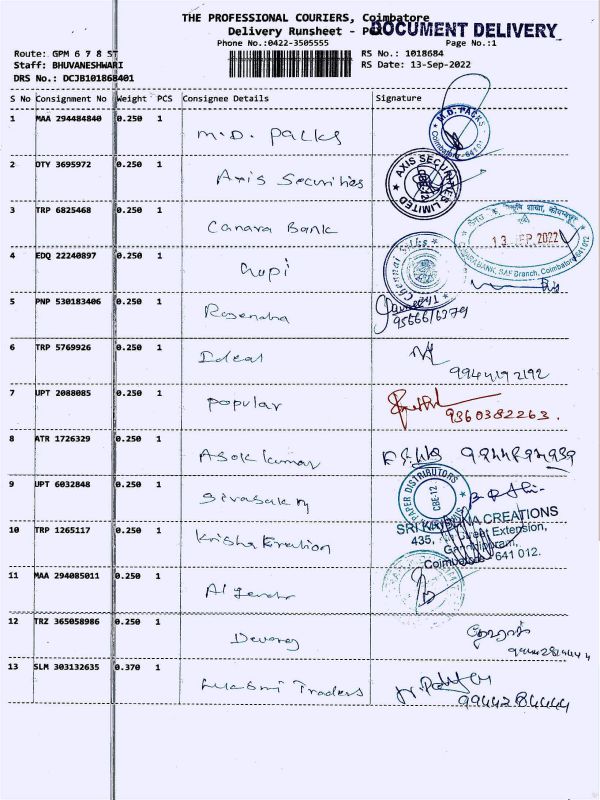 THE PROFESSIONAL COURIERS, Coimbatore
Delivery Runsheet -
DOCUMENT DELIVERY
Phone No.:0422-3505555
Page No.:1
Route: GPM 6 7 8 ST
RS No.: 1018684
Staff: BHUVANESHWARI
RS Date: 13-Sep-2022
DRS No.: DCJB101868401
S No Consignment No Weight PCS Consignee Details Signature
1 MAA 294484840 0.250 1 M.D. Packs
M.D. PACKS
Coimbatore - 641 012
2 DTY 3695972 0.250 1 Axis Securities
AXIS SECURITIES LIMITED
CBE-12
3 TRP 6825468 0.250 1 Canara Bank
13 SEP 2022
CANARA BANK, SAF Branch, Coimbatore 641 012
4 EDQ 22240897 0.250 1 Gopi
The Chennai Silks
5 PNP 530183406 0.250 1 Rajendra
9566616379
6 TRP 5769926 0.250 1 Ideal
9944192192
7 UPT 2088085 0.250 1 Popular
9360382263.
8 ATR 1726329 0.250 1 Asok kumar
9 UPT 6032848 0.250 1 Sivasakthy
PAPER DISTRIBUTORS
CBE-12
10 TRP 1265117 0.250 1 Krisha Kreation
SRI KRISHNA CREATIONS
435, Street Extension,
Gandhipuram,
Coimbatore - 641 012.
11 MAA 294085011 0.250 1
12 TRZ 365058986 0.250 1 Devaraj
13 SLM 303132635 0.370 1 Lukshmi Traders
9944284444